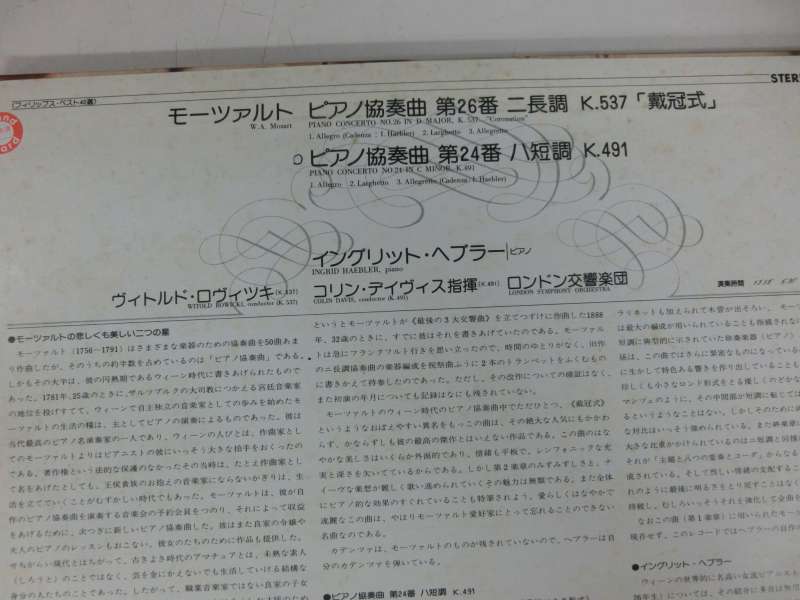 (フィリップス・ベスト40選)
STER
モーツァルト ピアノ協奏曲 第26番 ニ長調 K.537「戴冠式」
W.A. Mozart PIANO CONCERTO NO.26 IN D MAJOR, K. 537 "Coronation"
1. Allegro (Cadenza : I. Haebler) 2. Larghetto 3. Allegretto
ピアノ協奏曲 第24番 ハ短調 K.491
PIANO CONCERTO NO.24 IN C MINOR, K.491
1. Allegro 2. Larghetto 3. Allegretto (Cadenza: I. Haebler)
イングリット・ヘブラー ピアノ
INGRID HAEBLER, piano
ヴィトルド・ロヴィツキ(K.537) コリン・デイヴィス指揮(K.491) ロンドン交響楽団
WITOLD ROWICKI, conductor (K. 537) COLIN DAVIS, conductor (K.491) LONDON SYMPHONY ORCHESTRA
演奏時間
●モーツァルトの悲しくも美しい二つの星
モーツァルト(1756―1791)はさまざまな楽器のための協奏曲を50曲あま
り作曲したが、そのうちの約半数を占めているのは「ピアノ協奏曲」である。
しかもその大半は、彼の円熟期であるウィーン時代に書きあげられたもので
あった。1781年、25歳のときに、ザルツブルクの大司教につかえる宮廷音楽家
の地位を投げすてて、ウィーンで自主独立の音楽家としての歩みを始めたモ
ーツァルトの生活の糧は、主としてピアノの演奏によるものであった。彼は
当代最高のピアノ名演奏家の一人であり、ウィーンの人びとは、作曲家とし
てのモーツァルトよりはピアニストの彼にいっそう大きな拍手をおくったの
である。著作権という法的な保護のなかったその当時は、たとえ作曲家とし
て名をあげたとしても、王侯貴族のお抱えの音楽家にならないかぎりは、生
活を立てていくことがむずかしい時代でもあった。モーツァルトは、彼が自
作のピアノ協奏曲を演奏する音楽会の予約会員をつのり、それによって収益
をあげるために、次つぎに新しいピアノ協奏曲を作曲した。彼はまた良家の令嬢や
夫人のピアノのレッスンもおこない、彼女のたちのために作品も提供した。
せちがらい現代とはちがって、古きよき時代のアマチュアとは、未熟な素人
(しろうと)のことではなく、芸を金にかえないでも生活していける結構な
身分の人たちのことであった。したがって、職業音楽家ではない良家の子女
というとモーツァルトが《最後の3大交響曲》を立てつづけに作曲した1888
年、32歳のときに、すでに彼はそれを書きあげていたのである。モーツァル
トは急にフランクフルト行きを思い立ったので、時間のゆとりがなく、旧作
のニ長調協奏曲の楽器編成を祝祭曲ふうに2本のトランペットをふくむもの
に書きかえて持参したのであった。ただし、その改作についての確証はなく、
また初演の年月についても記録はなにも残されていない。
モーツァルトのウィーン時代のピアノ協奏曲中でただひとつ、《戴冠式》
というようなおぼえやすい異名をもつこの曲は、その絶大な人気にもかかわ
らず、かならずしも彼の最高の傑作とはいえない作品である。この曲のはな
やかな美しさはいくらか外面的であり、情緒も平板で、シンフォニックな充
実と深さを欠いているからである。しかし第2楽章のみずみずしさと、ナ
イーヴな楽想が麗しく歌い進められていくその魅力は無類である。また全体
にピアノ的な効果のすぐれていることも特筆されよう。愛らしくはなやかで
流麗なこの曲は、やはりモーツァルト愛好家にとって忘れることのできない
名曲なのである。
カデンツァは、モーツァルトのものが残されていないので、ヘブラーは自
分のカデンツァを弾いている。
●ピアノ協奏曲 第24番 ハ短調 K.491
ラリネットも加えられて木管が出そろい、モー
は最大の編成が用いられていることも指摘されな
なおこの曲(第1楽章)に用いられたモー
現存せず、このレコードではヘブラーの自作の
●イングリット・ヘブラー
ウィーンの世界的に名高い女流ピアニスト